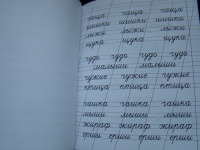 чаща чаща чаща
шишки шишки
лыжи лыжи лыжи
щука щука щука
чудо чудо чудо
малыши малыши
чужие чужие чужие
птица птица птица
чашка чашка чашка
мыши мыши мыши
жираф жираф жираф
ерши ерши ерши ерши